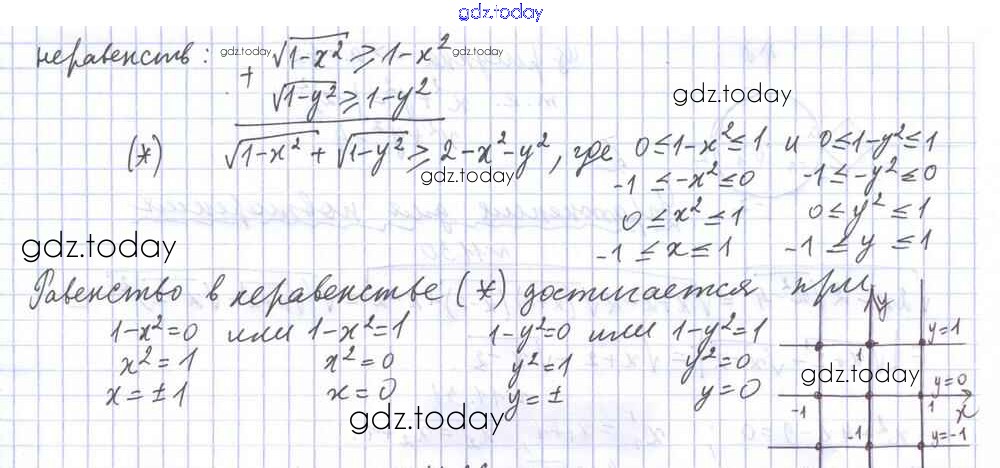 gdz.today
неравенств: gdz.today √1-x² ≥ 1-x² gdz.today
+ √1-y² ≥ 1-y²
gdz.today
(*) √1-x² + √1-y² ≥ 2-x²-y², где 0≤1-x²≤1 и 0≤1-y²≤1
gdz.today
-1≤-x²≤0 -1≤-y²≤0
0≤x²≤1 0≤y²≤1
gdz.today
-1≤x≤1 -1≤y≤1
Равенство в неравенстве (*) достигается при
1-x²=0 или 1-x²=1 1-y²=0 или 1-y²=1
x²=1 x²=0 y²=1 y²=0
x=±1 x=0 y=± y=0
gdz.today
y
y=1
1
gdz.today
y=0
-1 1 x
-1 y=-1